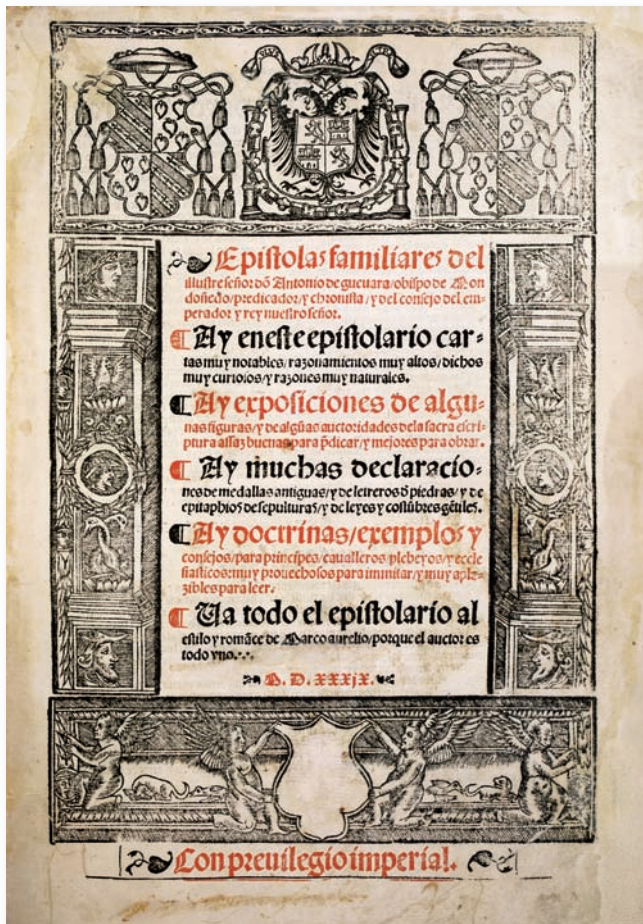 Epistolas familiares del
illustre señor dõ Antonio de gueuara/obispo de Mon
doñedo/predicador/y chronista/y del consejo del em-
perador y rey nuestro señor.
¶ Ay eneste epistolario car-
tas muy notables/razonamientos muy altos/dichos
muy curiosos/y razones muy naturales.
¶ Ay exposiciones de algu-
nas figuras/y de algũas auctoridades dela sacra escri-
ptura assaz buenas para p̃dicar/y mejores para obrar.
¶ Ay muchas declaracio-
nes de medallas antiguas/y de letreros d̃ piedras/y de
epitaphios de sepulturas/y de leyes y costũbres gẽtiles.
¶ Ay doctrinas/exemplos y
consejos/para principes/caualleros/plebeyos/y eccle
siasticos:muy prouechosos para immitar/y muy apla-
zibles para leer.
¶ Va todo el epistolario al
estilo y romãce de Marco aurelio/porque el auctor es
todo vno.
M. D. xxxjx.
Con preuilegio imperial.